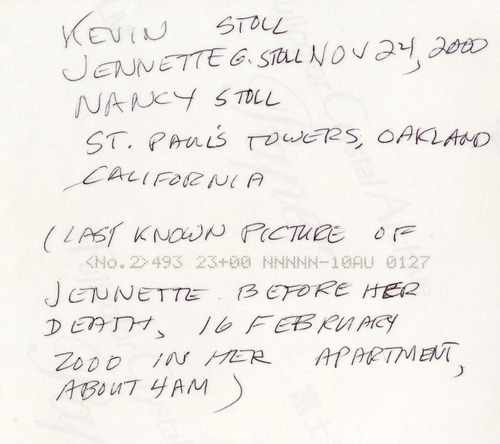 KEVIN STOLL
JENNETTE G. STOLL NOV 24, 2000
NANCY STOLL
ST. PAUL'S TOWERS, OAKLAND
CALIFORNIA
(LAST KNOWN PICTURE OF
<No.2>493 23+00 NNNNN-10AU 0127
JENNETTE BEFORE HER
DEATH, 16 FEBRUARY
2000 IN HER APARTMENT,
ABOUT 4AM)